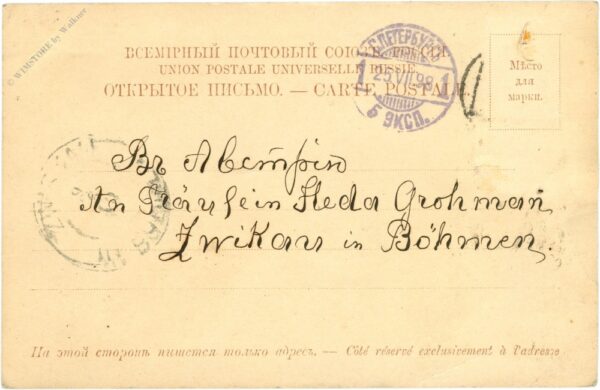 © WIMSTORE by Wallner
ВСЕМІРНЫЙ ПОЧТОВЫЙ СОЮЗЪ. РОССІЯ.
UNION POSTALE UNIVERSELLE. RUSSIE.
ОТКРЫТОЕ ПИСЬМО. — CARTE POSTALE.
С.ПЕТЕРБУРГЪ
1 25 VII 98 1
5 ЭКСП.
Мѣсто
для
марки.
Въ Австрію
An Fräulein Heda Grohman
Zwikau in Böhmen.
На этой сторонѣ пишется только адресъ. — Côté réservé exclusivement à l'adresse